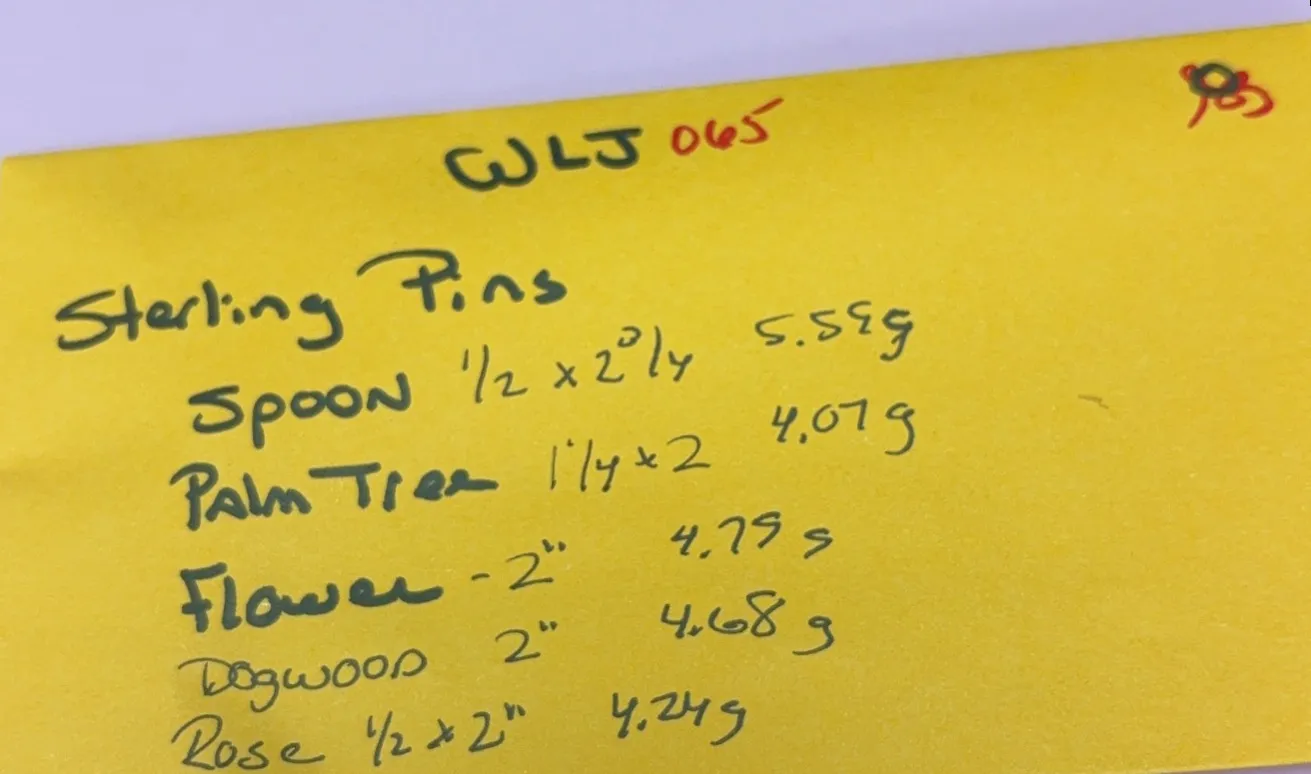 WLJ 065
Sterling Pins
Spoon 1/2 x 2 3/4 5.59g
Palm Tree 1 1/4 x 2 4.07g
Flower - 2" 4.79g
Dogwood 2" 4.68g
Rose 1/2 x 2" 4.24g